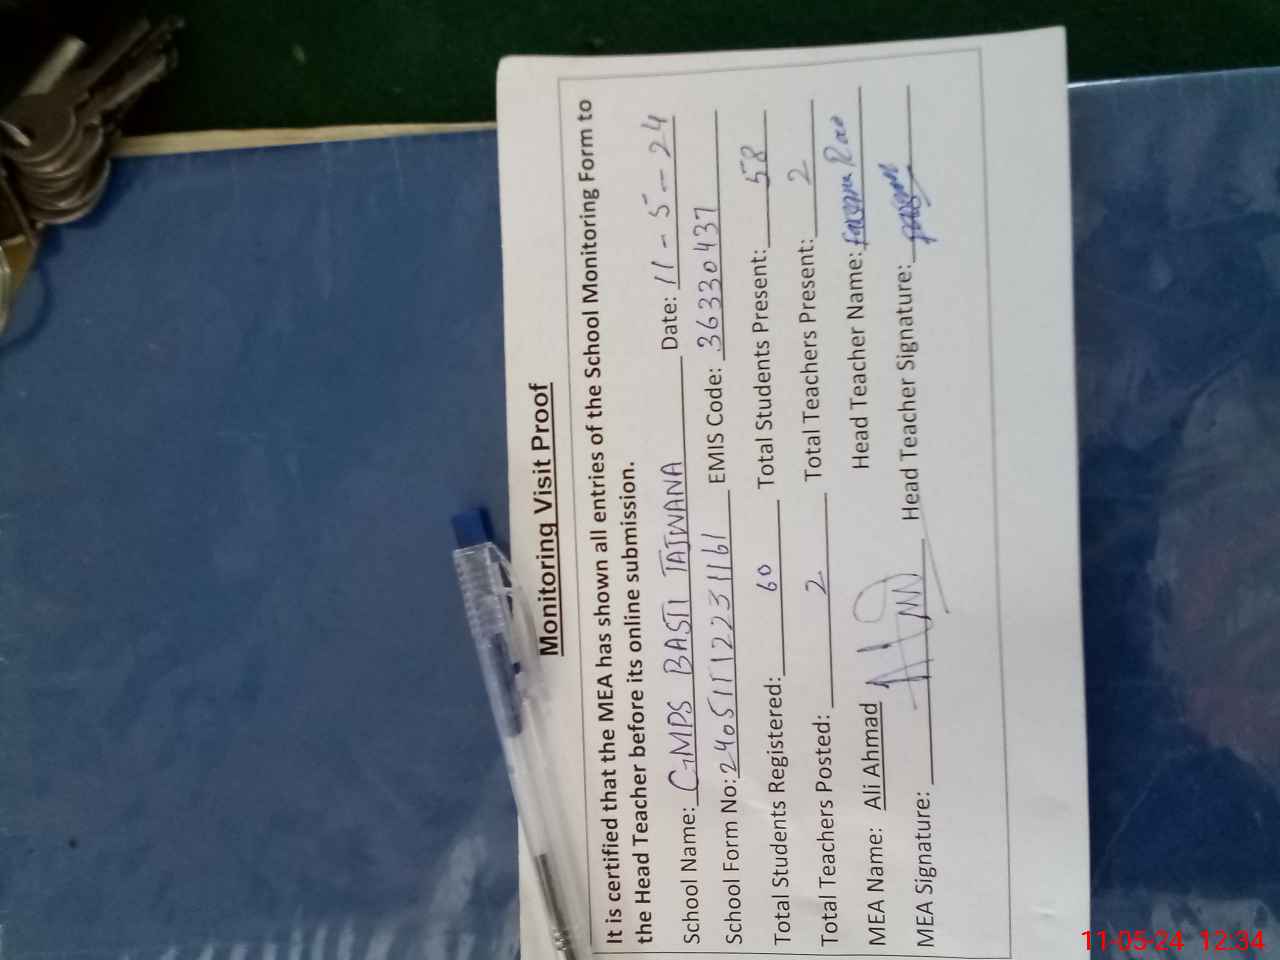 Monitoring Visit Proof
It is certified that the MEA has shown all entries of the School Monitoring Form to
the Head Teacher before its online submission.
School Name: GMPS BASTI TAJWANA Date: 11-5-24
School Form No: EMIS Code: 36330437
Total Students Registered: 60 Total Students Present: 58
Total Teachers Posted: 2 Total Teachers Present: 2
MEA Name: Ali Ahmad Head Teacher Name:
MEA Signature: Head Teacher Signature:
11-05-24 12:34